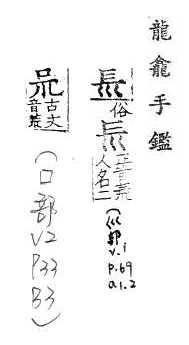 龍龕手鑑
俗
正音荒
人名二
(巛部
v.1
p.69
a1.2
古文
音荒
(口部
V2
P33
B3)